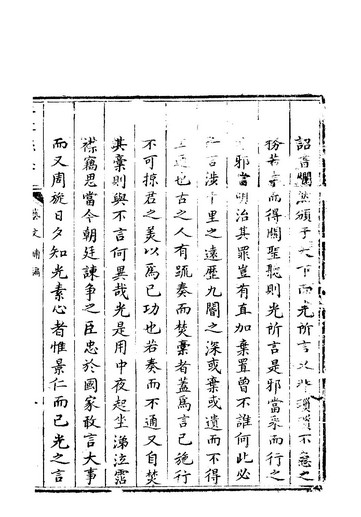 詔書爛然頒于天下而光所言以非瑣瑣不急之
務若幸而得關聖聽則光所言是邪當采而行之
邪當明治其罪豈有直加棄置曾不誰何此必
仁言涉千里之遠歷九閽之深或棄或遺而不得
也古之人有疏奏而焚稾者蓋為言已施行
不可掠君之美以為已功也若奏而不通又自焚
其稾則與不言何異哉光是用中夜起坐涕泣霑
襟竊思當今朝廷諫争之臣忠於國家敢言大事
而又周旋日夕知光素心者惟景仁而已光之言